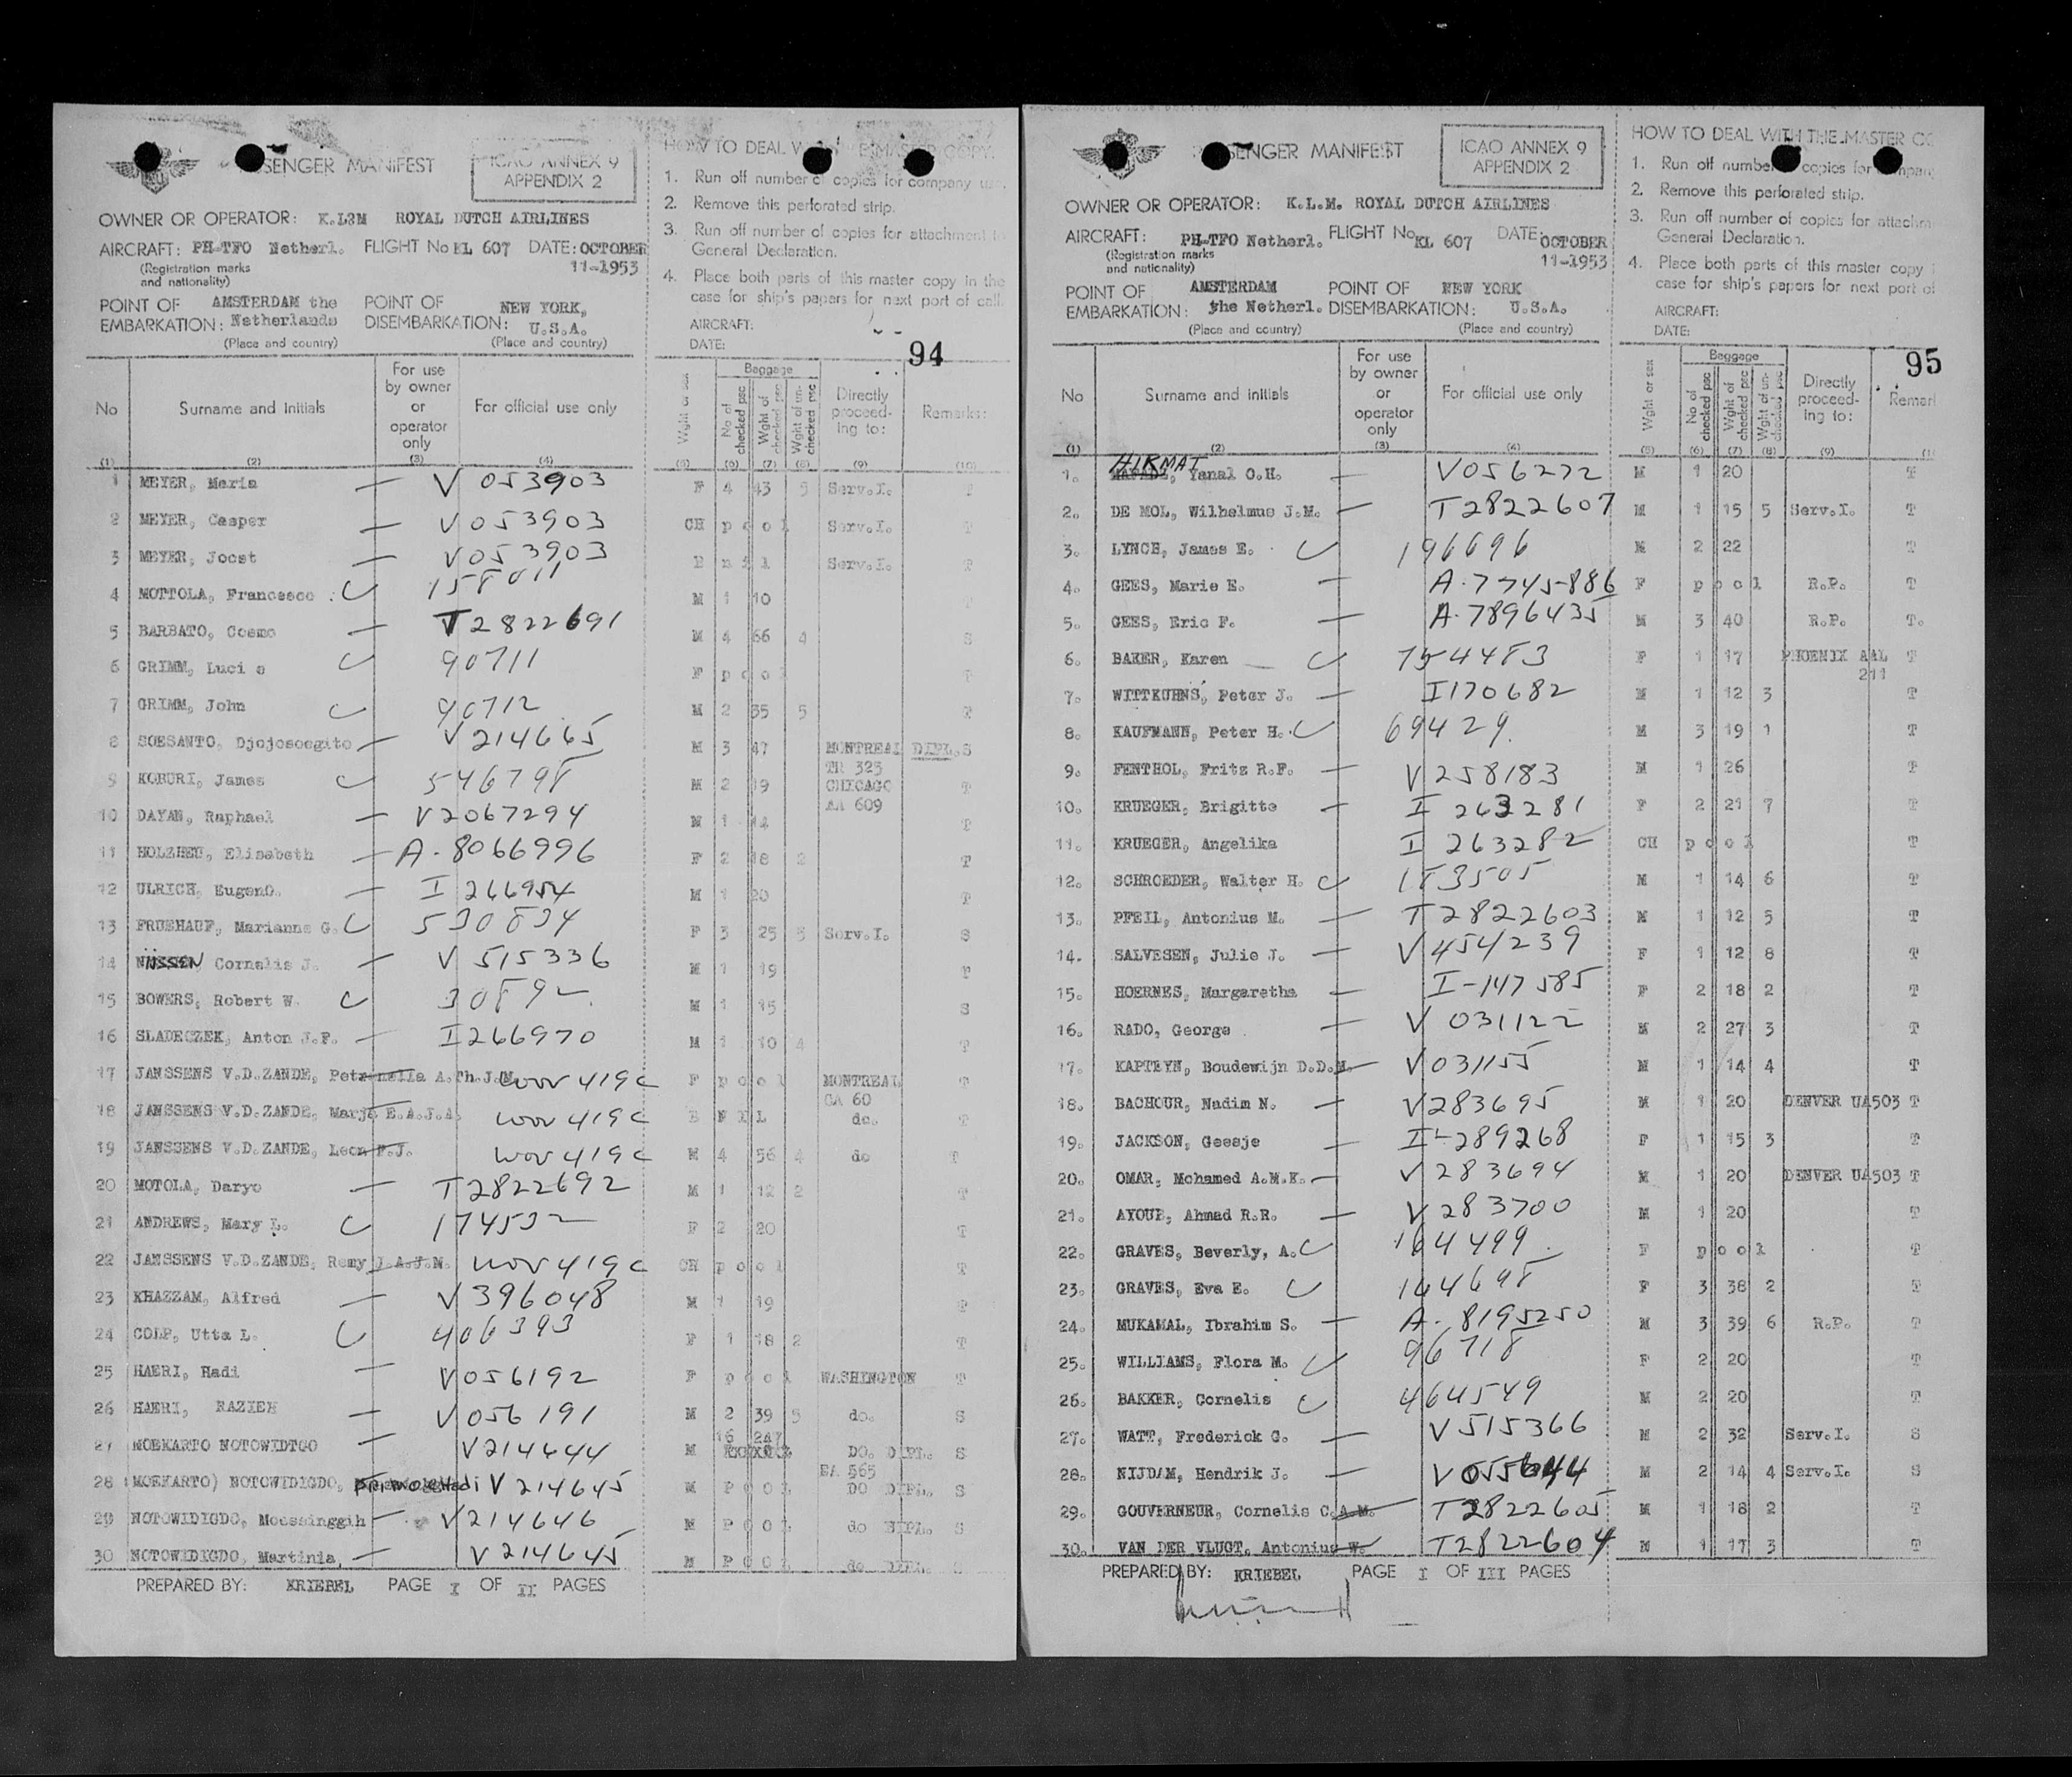 SENGER MANIFEST
ICAO ANNEX 9
APPENDIX 2
OWNER OR OPERATOR: K.L3M ROYAL DUTCH AIRLINES
AIRCRAFT: PH-TFO Netherl. FLIGHT No KL 607 DATE: OCTOBER
(Registration marks
and nationality)
11-1953
POINT OF EMBARKATION: AMSTERDAM the Netherlands
POINT OF DISEMBARKATION: NEW YORK, U.S.A.
(Place and country) (Place and country)
HOW TO DEAL W MASTER COPY.
1. Run off number of copies for company us.
2. Remove this perforated strip.
3. Run off number of copies for attachment to
General Declaration.
4. Place both parts of this master copy in the
case for ship's papers for next port of call.
AIRCRAFT:
DATE:
94
No Surname and Initials For use by owner or operator only For official use only Wght or sex Baggage No of checked psc Wght of checked psc Wght of un-checked psc Directly proceed-ing to: Remarks:
(1) (2) (3) (4) (5) (6) (7) (8) (9) (10)
1 MEYER, Maria — V 053903 F 4 43 5 Serv.I. T
2 MEYER, Casper — V053903 CH pool Serv.I. T
3 MEYER, Joost — V053903 B nil Serv.I. T
4 MOTTOLA, Francesco 158011 M 1 10
5 BARBATO, Cosmo — T2822691 M 4 66 4 S
6 GRIMM, Luci a 90711 F pool
7 GRIMM, John 90712 M 2 35 5 T
8 SOESANTO, Djojosoegito — V214665 M 3 47 MONTREAL DIPL.S
TR 323
9 KOBURI, James 546798 M 2 19 CHICAGO T
AA 609
10 DAYAN, Raphael — V2067294 M 1 14 T
11 HOLZHEU, Elisabeth — A-8066996 F 2 18 2 T
12 ULRICH, EugenO. — I 266954 M 1 20 T
13 FRUEHAUF, Marianne G. 530834 F 3 25 5 Serv.I. S
14 NIJSSEN, Cornelis J. — V 515336 M 1 19 T
15 BOWERS, Robert W. 30892 M 1 15 S
16 SLADECZEK, Anton J.F. — I266970 M 1 10 4 T
17 JANSSENS V.D.ZANDE, Petronella A.Th.J.M. wov 419c F pool MONTREAL T
CA 60
18 JANSSENS V.D.ZANDE, Marja E.A.J.A. wov 419c B NIL do. T
19 JANSSENS V.D.ZANDE, Leon F.J. wov 419c M 4 56 4 do T
20 MOTOLA, Daryo — T2822692 M 1 12 2 T
21 ANDREWS, Mary L. 174532 F 2 20 T
22 JANSSENS V.D.ZANDE, Remy J.A.J.M. wov 419c CH pool T
23 KHAZZAM, Alfred — V396048 M 1 19 T
24 COLP, Utta L. 406393 F 1 18 2 T
25 HAERI, Hadi — V056192 F pool WASHINGTON T
26 HAERI, RAZIEH — V056191 M 2 39 5 do. S
16 247
27 MOEKARTO NOTOWIDTGO — V214644 M DO. DIPL. S
EA 565
28 (MOEKARTO) NOTOWIDIGDO, V214645 M POOL DO DIPL. S
29 NOTOWIDIGDO, Moessinggih — V214646 M POOL do DIPL. S
30 NOTOWIDIGDO, Martinia, — V214645 M POOL do DIPL.
PREPARED BY: KRIEBEL PAGE I OF II PAGES
SENGER MANIFEST
ICAO ANNEX 9
APPENDIX 2
OWNER OR OPERATOR: K.L.M. ROYAL DUTCH AIRLINES
AIRCRAFT: PH-TFO Netherl. FLIGHT No KL 607 DATE: OCTOBER
(Registration marks
and nationality)
11-1953
POINT OF EMBARKATION: AMSTERDAM the Netherl.
POINT OF DISEMBARKATION: NEW YORK U.S.A.
(Place and country) (Place and country)
HOW TO DEAL WITH THE MASTER CO
1. Run off number copies for mpany
2. Remove this perforated strip.
3. Run off number of copies for attachm
General Declaration.
4. Place both parts of this master copy i
case for ship's papers for next port of
AIRCRAFT:
DATE:
95
No Surname and initials For use by owner or operator only For official use only Wght or sex Baggage No of checked psc Wght of checked psc Wght of un-checked psc Directly proceed-ing to: Remark
(1) (2) (3) (4) (5) (6) (7) (8) (9)
1. HIKMAT Yanal O.H. — V056272 M 1 20 T
2. DE MOL, Wilhelmus J.M. — T2822607 M 1 15 5 Serv.I. T
3. LYNCH, James E. 196696 M 2 22 T
4. GEES, Marie E. — A-7745886 F pool R.P. T
5. GEES, Eric F. — A-7896435 M 3 40 R.P. T.
6. BAKER, Karen 754483 F 1 17 PHOENIX AAL T
211
7. WITTKUHNS, Peter J. — I170682 M 1 12 3 T
8. KAUFMANN, Peter H. 69429. M 3 19 1 T
9. FENTHOL, Fritz R.F. — V258183 M 1 26 T
10. KRUEGER, Brigitte — I 263281 F 2 21 7 T
11. KRUEGER, Angelika I 263282 CH pool T
12. SCHROEDER, Walter H. 183505 M 1 14 6 T
13. PFEIL, Antonius M. — T2822603 M 1 12 5 T
14. SALVESEN, Julie J. — V454239 F 1 12 8 T
15. HOERNES, Margarethe — I-147585 F 2 18 2 T
16. RADO, George — V 031122 M 2 27 3 T
17. KAPTEYN, Boudewijn D.D.M. — V031155 M 1 14 4 T
18. BACHOUR, Nadim N. — V283695 M 1 20 DENVER UA503 T
19. JACKSON, Geesje — I-289268 F 1 15 3 T
20. OMAR, Mohamed A.M.K. — V283694 M 1 20 DENVER UA503 T
21. AYOUB, Ahmad R.R. — V283700 M 1 20 T
22. GRAVES, Beverly, A. 164499 F pool T
23. GRAVES, Eva E. 164698 F 3 38 2 T
24. MUKAMAL, Ibrahim S. — A-8195250 M 3 39 6 R.P. T
25. WILLIAMS, Flora M. 96718 F 2 20 T
26. BAKKER, Cornelis 464549 M 2 20 T
27. WATT, Frederick G. — V515366 M 2 32 Serv.I. S
28. NIJDAM, Hendrik J. — V055644 M 2 14 4 Serv.I. S
29. GOUVERNEUR, Cornelis C.A.M. — T2822605 M 1 18 2 T
30. VAN DER VLUGT, Antonius W. — T2822604 M 1 17 3 T
PREPARED BY: KRIEBEL PAGE I OF III PAGES